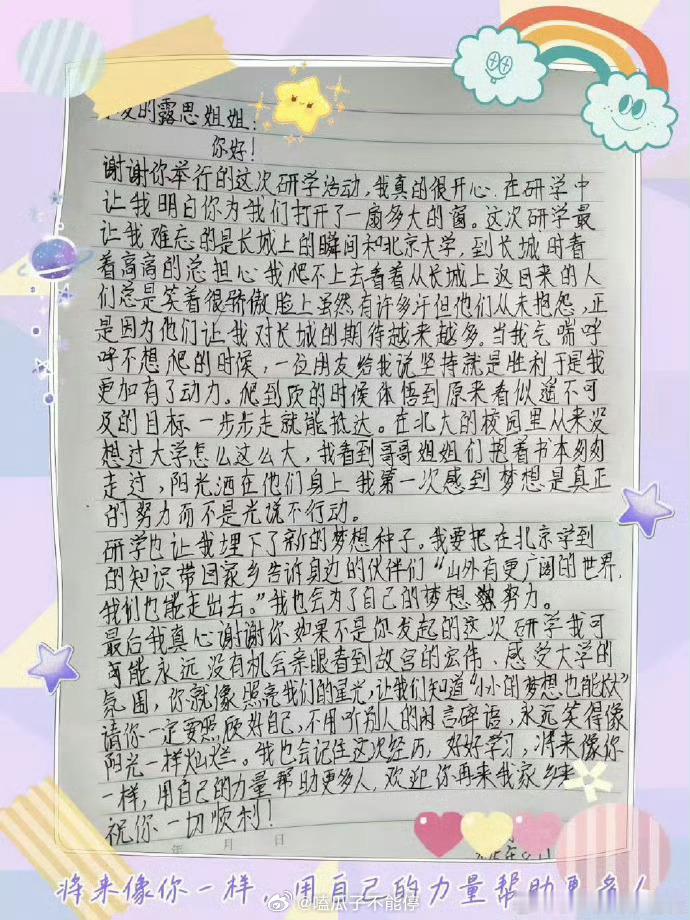 爱的露思姐姐：
你好！
谢谢你举行的这次研学活动，我真的很开心.在研学中
让我明白你为我们打开了一扇多大的窗。这次研学最
让我难忘的是长城上的瞬间和北京大学，到长城时看
着高高的总担心我爬不上去看着从长城上返回来的人
们总是笑着很骄傲脸上虽然有许多汗但他们从未抱怨，正
是因为他们让我对长城的期待越来越多。当我气喘呼
呼不想爬的时候，一位朋友给我说坚持就是胜利于是我
更加有了动力。爬到顶的时候体悟到原来看似遥不可
及的目标一步步走就能抵达。在北大的校园里从来没
想过大学怎么这么大，我看到哥哥姐姐们抱着书本匆匆
走过，阳光洒在他们身上我第一次感到梦想是真正
的努力而不是光说不行动。
研学也让我埋下了新的梦想种子。我要把在北京学到
的知识带回家乡告诉身边的伙伴们“山外有更广阔的世界，
我们也能走出去。”我也会为了自己的梦想努力。
最后我真心谢谢你如果不是你发起的这次研学我可
能永远没有机会亲眼看到故宫的宏伟、感受大学的
氛围，你就像照亮我们的星光，让我们知道“小小的梦想也能
请你一定要照顾好自己，不用听别人的闲言碎语，永远笑得像
阳光一样灿烂。我也会记住这次经历，好好学习，将来像你
一样，用自己的力量帮助更多人，欢迎你再来我家乡
祝你一切顺利！
年 月 日
将来像你一样，用自己的力量帮助更多人
@嗑瓜子不能停